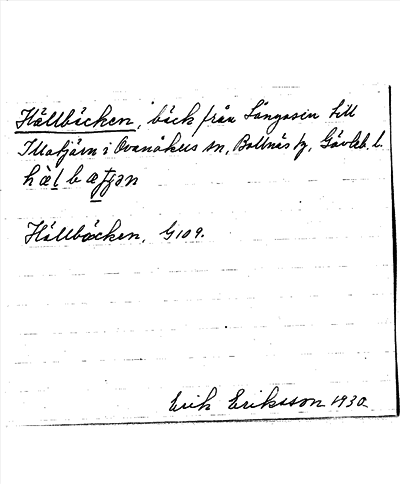 Hällbäcken, bäck från Långosin till
Illatjärn i Ovanåkers sn, Bollnäs tg, Gävleb. l.
Hällbäcken, G109.
Erik Eriksson 1930